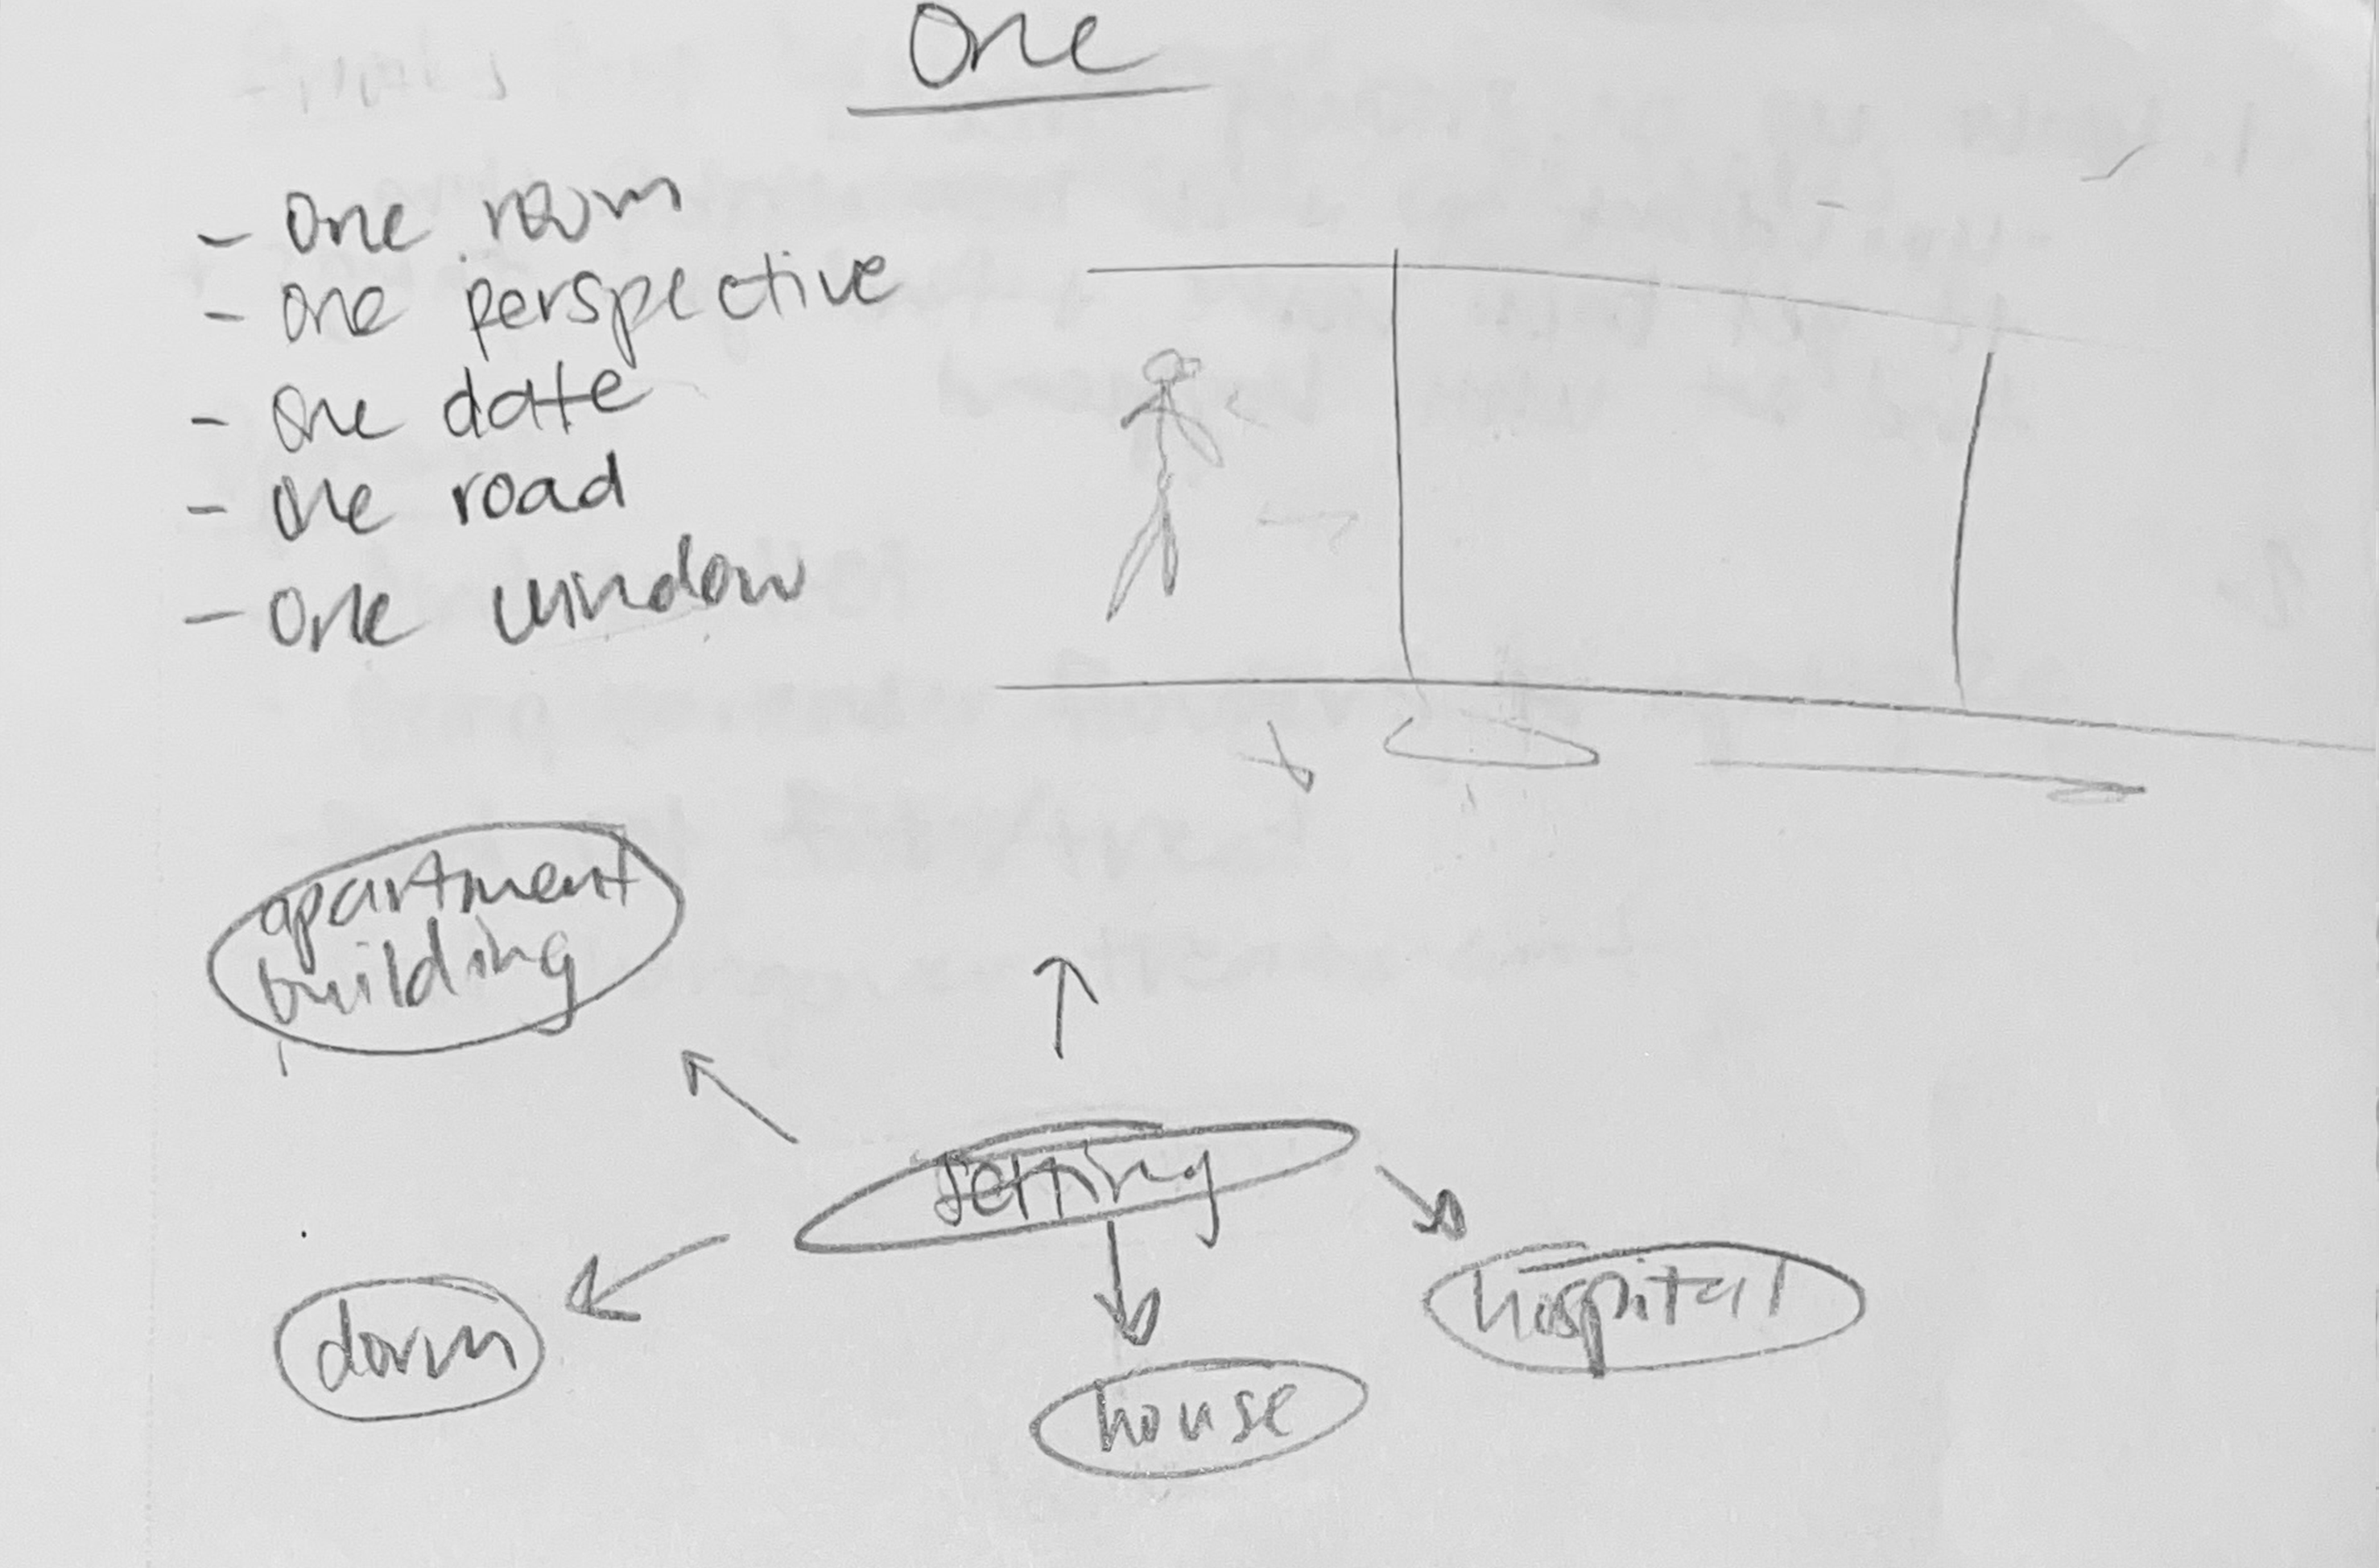 One
- one room
- one perspective
- one date
- one road
- one window
apartment
building
setting
hospital
dorm
house